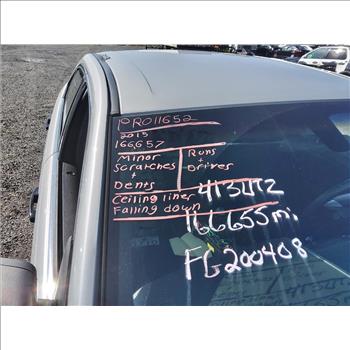 PRO11652
2015
166,657
Minor
Scratches
+
Dents
Runs
+
Drives
Ceiling liner
Falling down
166655 mi
FG200408